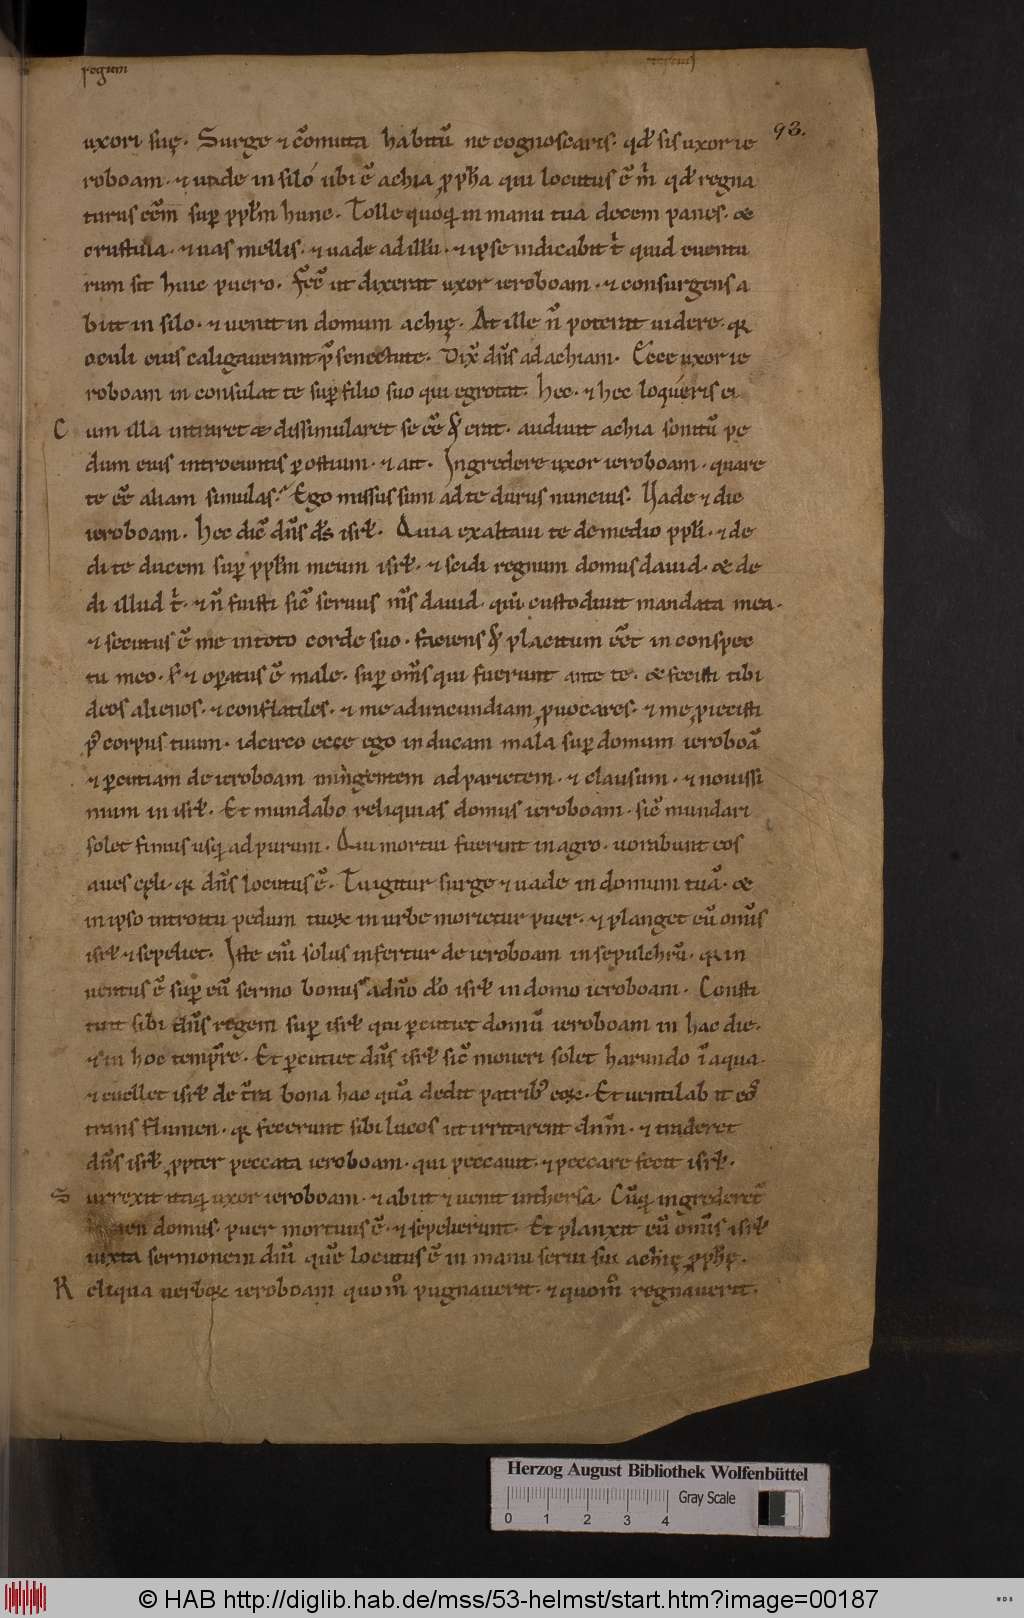 regum
tercius
93.
uxori suę. Surge ⁊ cōmuta habitū ne cognoscaris. qđ sis uxor ie
roboam. ⁊ uade in siló ubi ē achia ꝓpħa qui locutus ē m̄ qđ regna
turus eēm sup̄ pplm̄ hunc. Tolle quoqꝫ in manu tua decem panes. &
crustula. ⁊ uas mellis. ⁊ uade ad illū. ⁊ ipse indicabit t̄ quid euentu
rum sit huic puero. Fēc̄ ut dixerat uxor ieroboam. ⁊ consurgens a
biit in silo. ⁊ uenit in domum achię. At ille n̄ poterat uidere. qꝛ
oculi eius caligauerant p̄ senectute. Dix̄ dn̄s ad achiam. Ecce uxor ie
roboam in consulat te sup̄ filio suo qui egrotat. Hec. ⁊ hec loquéris ei.
C um illa intraret & dissimularet se eē̄ q̄ erat. audiuit achia sonitū pe
dum eius introeuntis ꝑ ostium. ⁊ ait. Ingredere uxor ieroboam. quare
te eē̄ aliam simulas? Ego missus sum ad te durus nuncius. Uade ⁊ dic
ieroboam. Hec dic̄ dn̄s ds̄ isrł. Quia exaltaui te de medio ppłi. ⁊ de
di te ducem sup̄ pplm̄ meum isrł. ⁊ scidi regnum domus dauid. & de
di illud t̄. ⁊ n̄ fuisti sic̄ seruus m̄s dauid. qui custodiuit mandata mea.
⁊ secutus ē me in toto corde suo. faciens q̄ placitum eēt in conspec
tu meo. s; ⁊ oꝑatus ē male. sup̄ om̄s qui fuerunt ante te. & fecisti tibi
deos alienos. ⁊ conflatiles. ⁊ me ad iracundiam ꝓuocares. ⁊ me ꝓiecisti
p⁹ corpus tuum. idcirco ecce ego inducam mala sup̄ domum ieroboā
⁊ ꝑcutiam de ieroboam mingentem ad parietem. ⁊ clausum. ⁊ nouissi
mum in isrł. Et mundabo reliquias domus ieroboam. sic̄ mundari
solet fimus usqꝫ ad purum. Qui mortui fuerint in agro. uorabunt eos
aues cęli. qꝛ dn̄s locutus ē. Tu igitur surge ⁊ uade in domum tuā. &
in ipso introitu pedum tuoꝝ in urbe morietur puer. ⁊ planget eū om̄s
isrł ⁊ sepeliet. Iste eni̅ solus infertur de ieroboam in sepulchrū. qꝛ in
uentus ē sup̄ eū sermo bonus adn̄o do̅ isrł in domo ieroboam. Consti
tuit sibi dn̄s regem sup̄ isrł qui ꝑcutiet domū ieroboam in hac die.
⁊ in hoc temp̄re. Et ꝑcutiet dn̄s isrł sic̄ moueri solet harundo ī aqua.
⁊ euellet isrł de t̄ra bona hac quā dedit patrib⁹ eoꝝ. Et uentilab it eo⁹
trans flumen. qꝛ fecerunt sibi lucos ut irritarent dnm̄. ⁊ tradet
dn̄s isrł ꝓpter peccata ieroboam. qui peccauit. ⁊ peccare fecit isrł.
S urrexit itaqꝫ uxor ieroboam. ⁊ abiit ⁊ uenit in thersa. Cūqꝫ ingrederet̄
limen domus. puer mortuus ē. ⁊ sepelierunt. Et planxit eū om̄s isrł
iuxta sermonem dn̄i que̅ locutus ē in manu serui sui achię ꝓpħę.
R eliqua uerboꝝ ieroboam quom̊ pugnauerit. ⁊ quom̊ regnauerit.
Herzog August Bibliothek Wolfenbüttel
Gray Scale
0 1 2 3 4
© HAB http://diglib.hab.de/mss/53-helmst/start.htm?image=00187